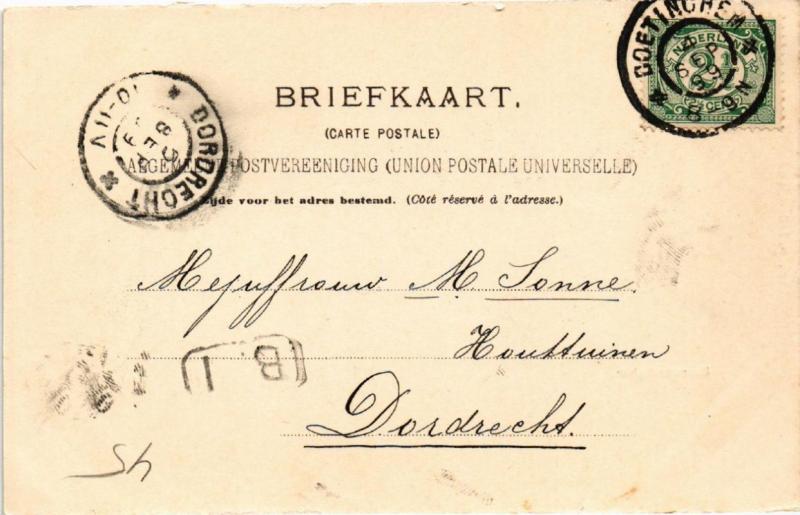 DOETINCHEM
SEP
8-9N
NEDERLAND
2½ CENT
DORDRECHT
10-11V
BRIEFKAART.
(CARTE POSTALE)
ALGEMEENE POSTVEREENIGING (UNION POSTALE UNIVERSELLE)
Zijde voor het adres bestemd. (Côté réservé à l'adresse.)
Mejuffrouw M. Sonne.
Houttuinen
Dordrecht.
B 1